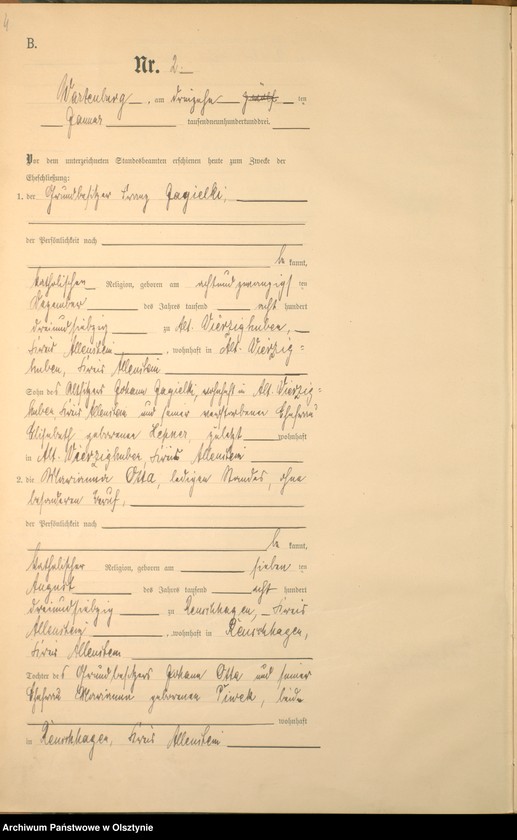 4
B.
Nr. 2
Wartenberg, am dreizehn zwölf ten
Januar tausendneunhundertunddrei.
Vor dem unterzeichneten Standesbeamten erschienen heute zum Zwecke der
Eheschließung:
1. der Grundbesitzer Franz Jagielki,
der Persönlichkeit nach
be kannt,
katholischen Religion, geboren am achtundzwanzigs ten
Dezember des Jahres tausend acht hundert
dreiundsiebzig zu Alt-Vierzighuben,
Kreis Allenstein, wohnhaft in Alt-Vierzig-
huben, Kreis Allenstein
Sohn des Altsitzers Johann Jagielki, wohnhaft in Alt-Vierzig-
huben Kreis Allenstein und seiner verstorbenen Ehefrau
Elisabeth geborenen Hepner, zuletzt wohnhaft
in Alt-Vierzighuben, Kreis Allenstein
2. die Marianna Otta, ledigen Standes, ohne
besonderen Beruf,
der Persönlichkeit nach
be kannt,
katholischer Religion, geboren am sieben ten
August des Jahres tausend acht hundert
dreiundsiebzig zu Reuschhagen, Kreis
Allenstein, wohnhaft in Reuschhagen,
Kreis Allenstein
Tochter des Grundbesitzers Johann Otta und seiner
Ehefrau Marianna geborenen, beide
wohnhaft
in Reuschhagen, Kreis Allenstein
Archiwum Państwowe w Olsztynie